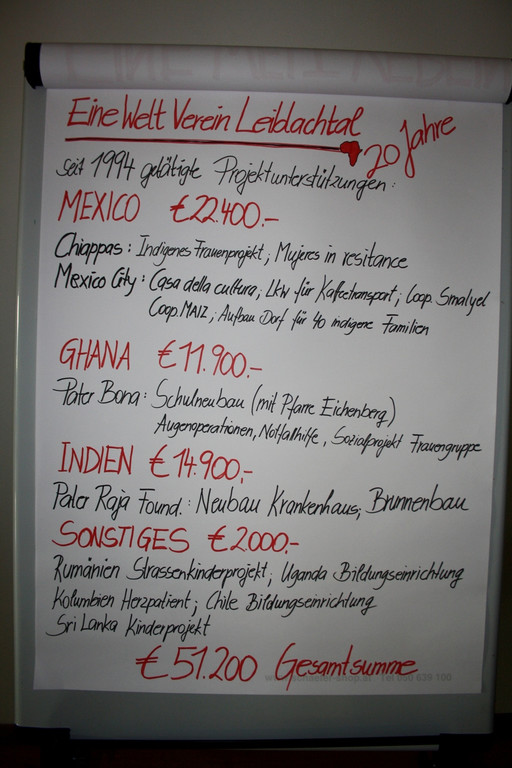 Eine Welt Verein Leiblachtal
20 Jahre
seit 1994 getätigte Projektunterstützungen:
MEXICO €22.400.-
Chiappas: Indigenes Frauenprojekt; Mujeres in resitance
Mexico City: Casa della cultura; Lkw für Kaffeetransport; Coop. Smalyel
Coop. MAIZ; Aufbau Dorf für 40 indigene Familien
GHANA €11.900.-
Pater Bona: Schulneubau (mit Pfarre Eichenberg)
Augenoperationen, Notfallhilfe, Sozialprojekt Frauengruppe
INDIEN €14.900,-
Pater Raja Found.: Neubau Krankenhaus; Brunnenbau
SONSTIGES €2.000.-
Rumänien Strassenkinderprojekt; Uganda Bildungseinrichtung
Kolumbien Herzpatient; Chile Bildungseinrichtung
Sri Lanka Kinderprojekt
€51.200 Gesamtsumme